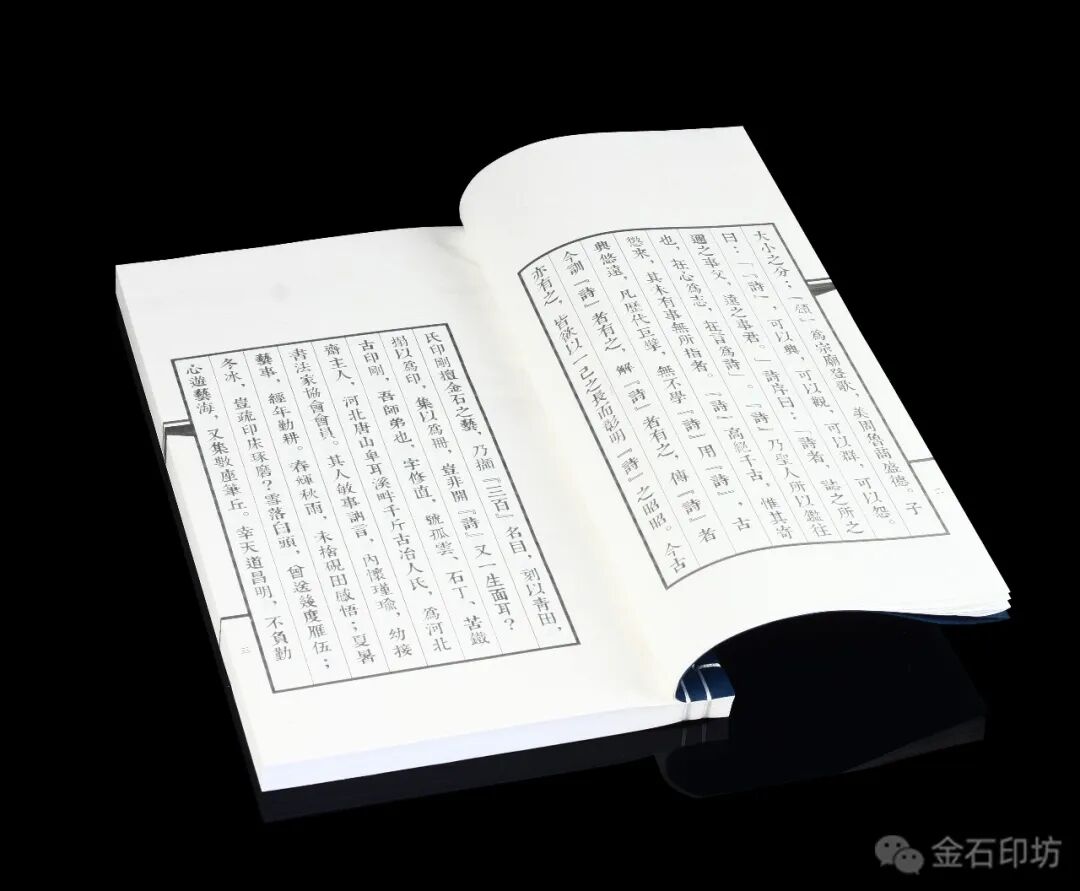 大小之分；「頌」為宗廟登歌，美周魯商盛德。子
曰：「『詩』，可以興，可以觀，可以群，可以怨。
邇之事父，遠之事君。」詩序曰：「詩者，誌之所之
也，在心為志，在言為詩」。『詩』乃聖人所以鑑往
懲來，其未有事無所指者。『詩』高絕千古，惟其寄
興悠遠，凡歷代巨擘，無不學『詩』用『詩』，古
今訓『詩』者有之，解『詩』者有之，傳『詩』者
亦有之，皆欲以一己之長而彰明『詩』之昭昭。今古
二
氏印剛擅金石之藝，乃摘『三百』名目，刻以青田，
搨以為印，集以為冊，豈非開『詩』又一生面耳？
古印剛，吾師弟也，字修直，號孤雲、石丁、苦鐵
齋主人，河北唐山阜耳溪畔千斤古冶人氏，為河北
書法家協會會員。其人敏事訥言，內懷瑾瑜，幼接
藝事，經年勤耕。春輝秋雨，未捨硯田感悟；夏暑
冬冰，豈疏印床琢磨？雪落白頭，曾送幾度雁伍；
心遊藝海，又集數座筆丘。幸天道昌明，不負勤
三
金石印坊